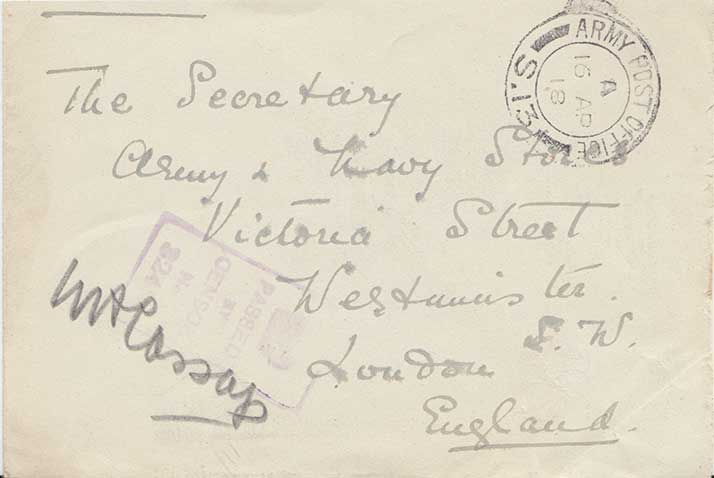 ARMY POST OFFICE
A
16 AP
18
The Secretary
Army & Navy Stores
Victoria Street
Westminster.
S. W.
London
England.
PASSED
BY
CENSOR
No.